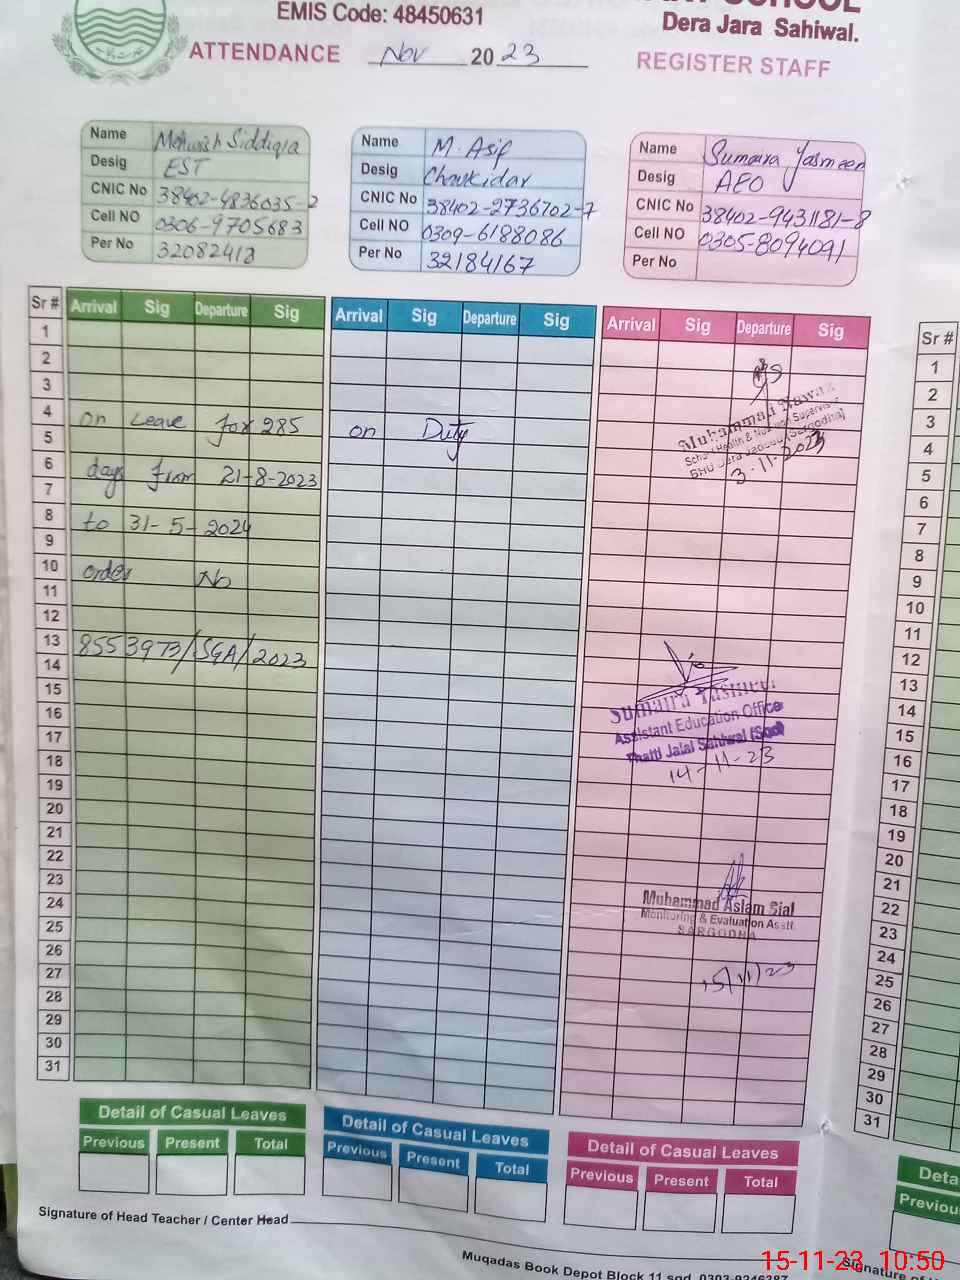 EMIS Code: 48450631
SCHOOL
Dera Jara Sahiwal.
ATTENDANCE Nov 2023
REGISTER STAFF
Name Mehwish Siddiqa
Desig EST
CNIC No 38402-4836035-2
Cell NO 0306-9705683
Per No 32082418
Name M. Asif
Desig Chowkidar
CNIC No 38402-2736702-7
Cell NO 0309-6188086
Per No 32184167
Name Sumaira Yasmeen
Desig AEO
CNIC No 38402-9431181-8
Cell NO 0305-8094091
Per No
Sr # Arrival Sig Departure Sig
Arrival Sig Departure Sig
Arrival Sig Departure Sig
Sr #
1
2
3
4
5
6
7
8
9
10
11
12
13
14
15
16
17
18
19
20
21
22
23
24
25
26
27
28
29
30
31
on Leave for 285
days from 21-8-2023
to 31-5-2024
order No
8553973/SGA/2023
on Duty
Muhammad Nawaz
School Health & Nutrition Supervisor
BHU Dera Jadeed (Sargodha)
3-11-2023
Sumaira Yasmeen
Assistant Education Office
Thatti Jalal Sahiwal (Sgd)
14-11-23
Muhammad Aslam Sial
Monitoring & Evaluation Asstt.
SARGODHA
15/11/23
1
2
3
4
5
6
7
8
9
10
11
12
13
14
15
16
17
18
19
20
21
22
23
24
25
26
27
28
29
30
31
Detail of Casual Leaves
Previous Present Total
Detail of Casual Leaves
Previous Present Total
Detail of Casual Leaves
Previous Present Total
Deta
Previou
Signature of Head Teacher / Center Head
Muqadas Book Depot Block 11 sgd. 0303-9246387
Signature of
15-11-23 10:50